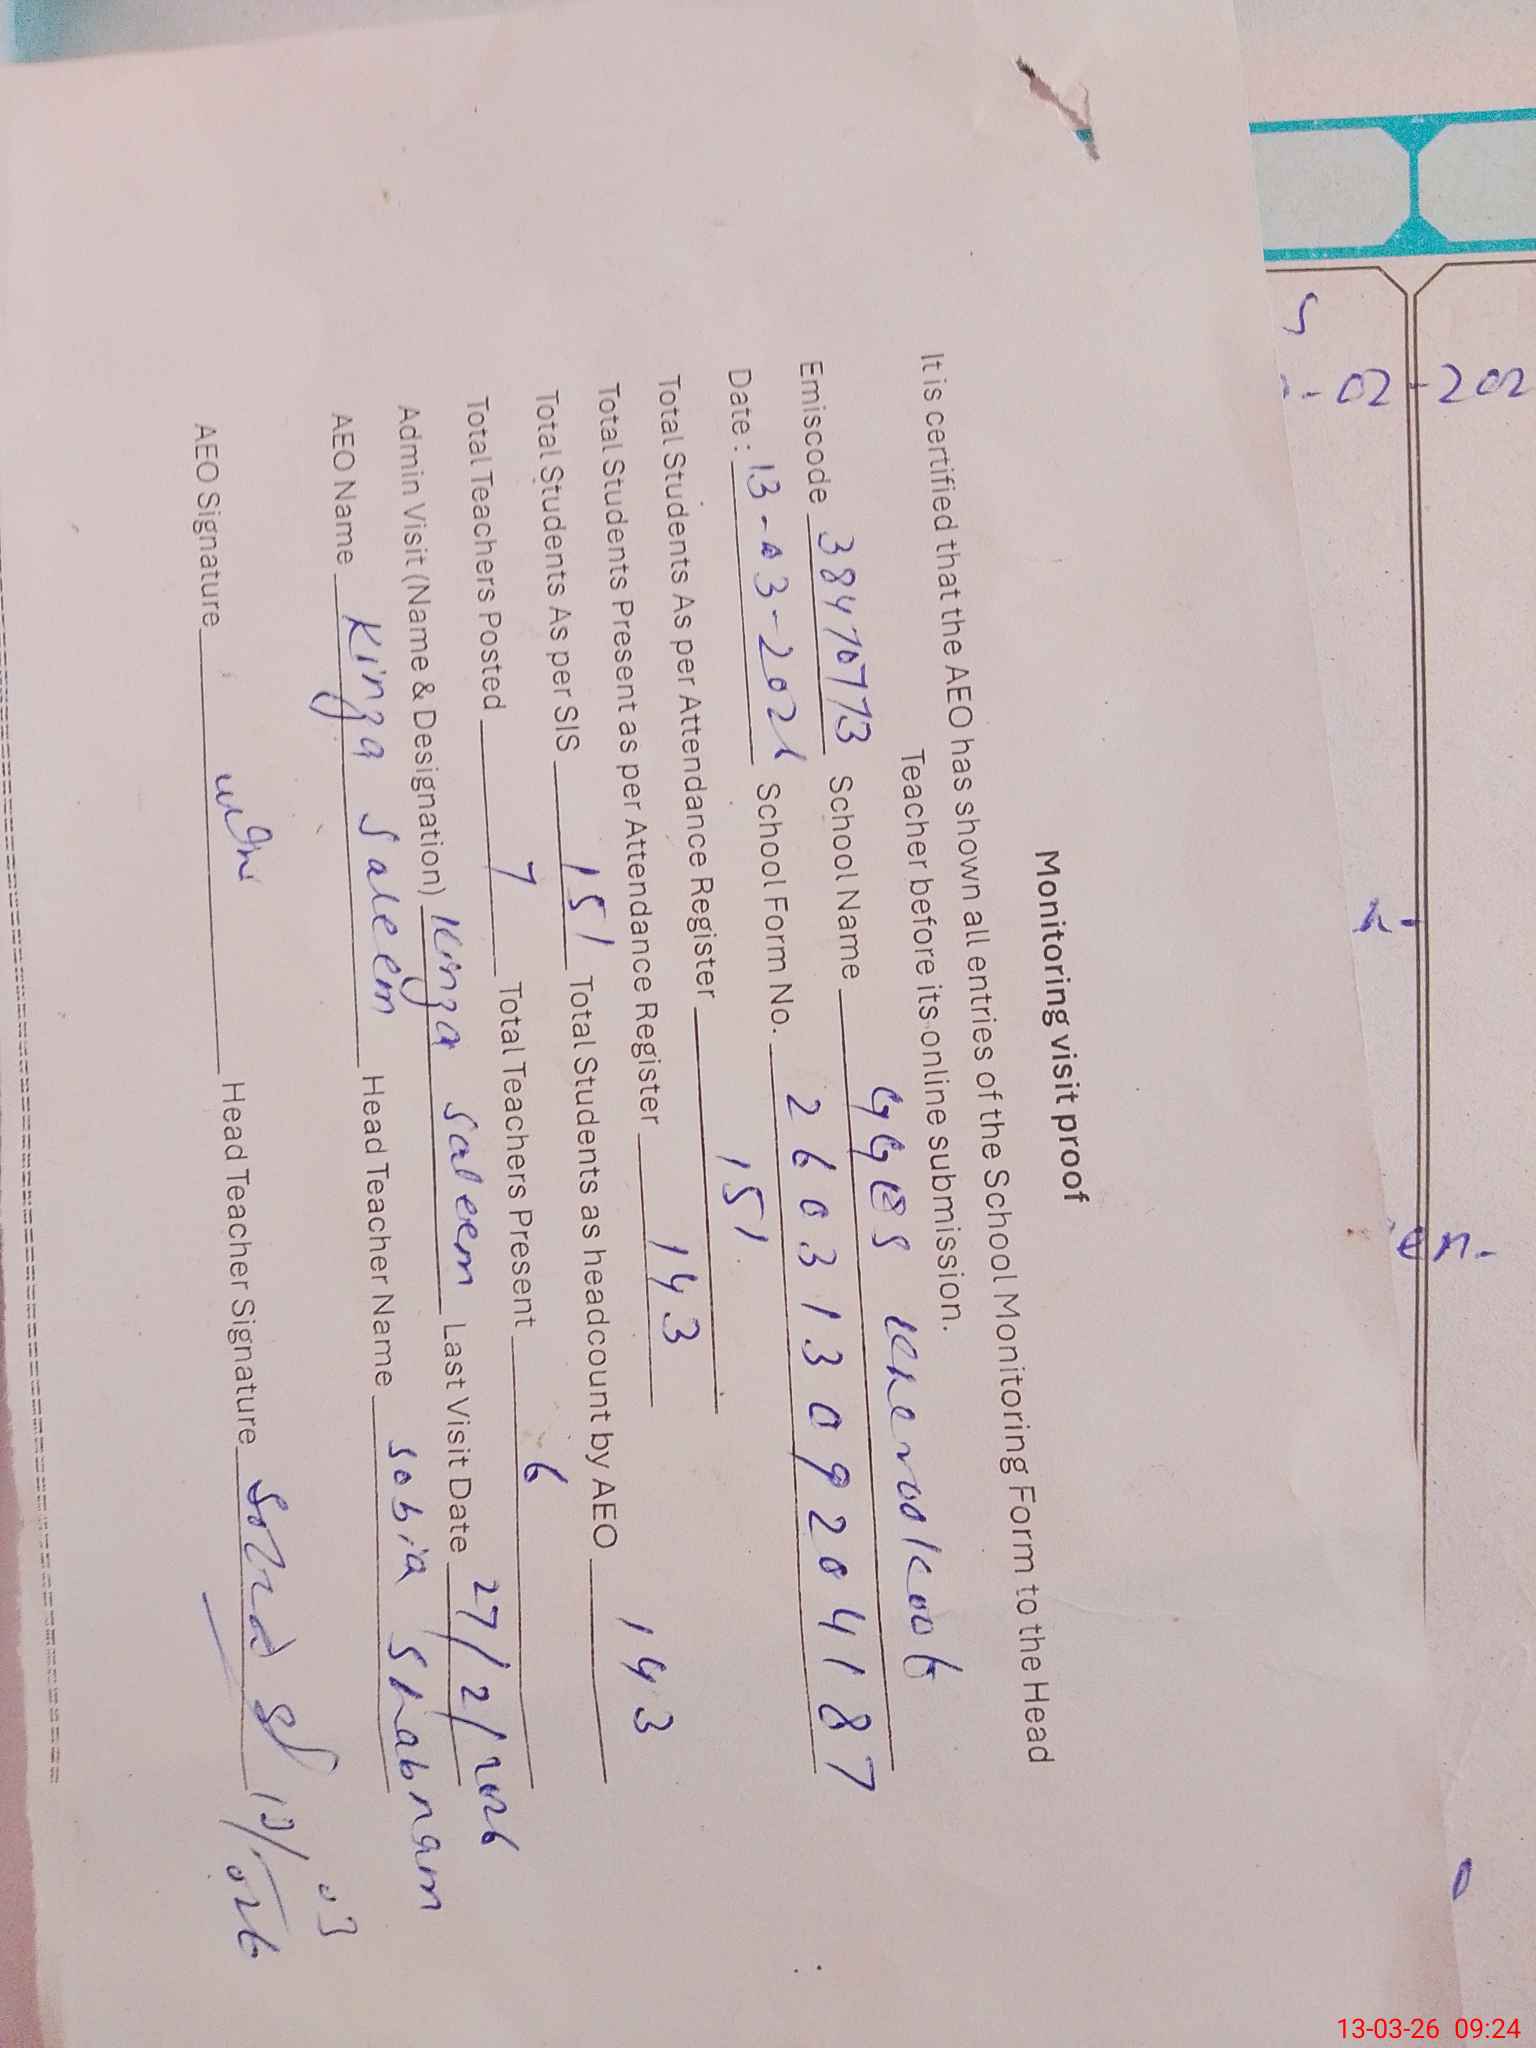 Monitoring visit proof
It is certified that the AEO has shown all entries of the School Monitoring Form to the Head
Teacher before its online submission.
Emiscode 38470773 School Name GGES
Date: 13-03-2026 School Form No. 26031309204187
Total Students As per Attendance Register 151
Total Students Present as per Attendance Register 143
Total Students As per SIS 151 Total Students as headcount by AEO 143
Total Teachers Posted 7 Total Teachers Present 6
Admin Visit (Name & Designation) Kinza Saleem Last Visit Date 27/2/2026
AEO Name Kinza Saleem Head Teacher Name Sobia Shabnam
AEO Signature Head Teacher Signature
-02-202
13-03-26 09:24